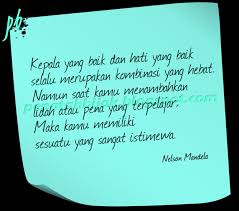 pb
Kepala yang baik dan hati yang baik
selalu merupakan kombinasi yang hebat.
Namun saat kamu menambahkan
lidah atau pena yang terpelajar.
Maka kamu memiliki
sesuatu yang sangat istimewa.
Nelson Mandela